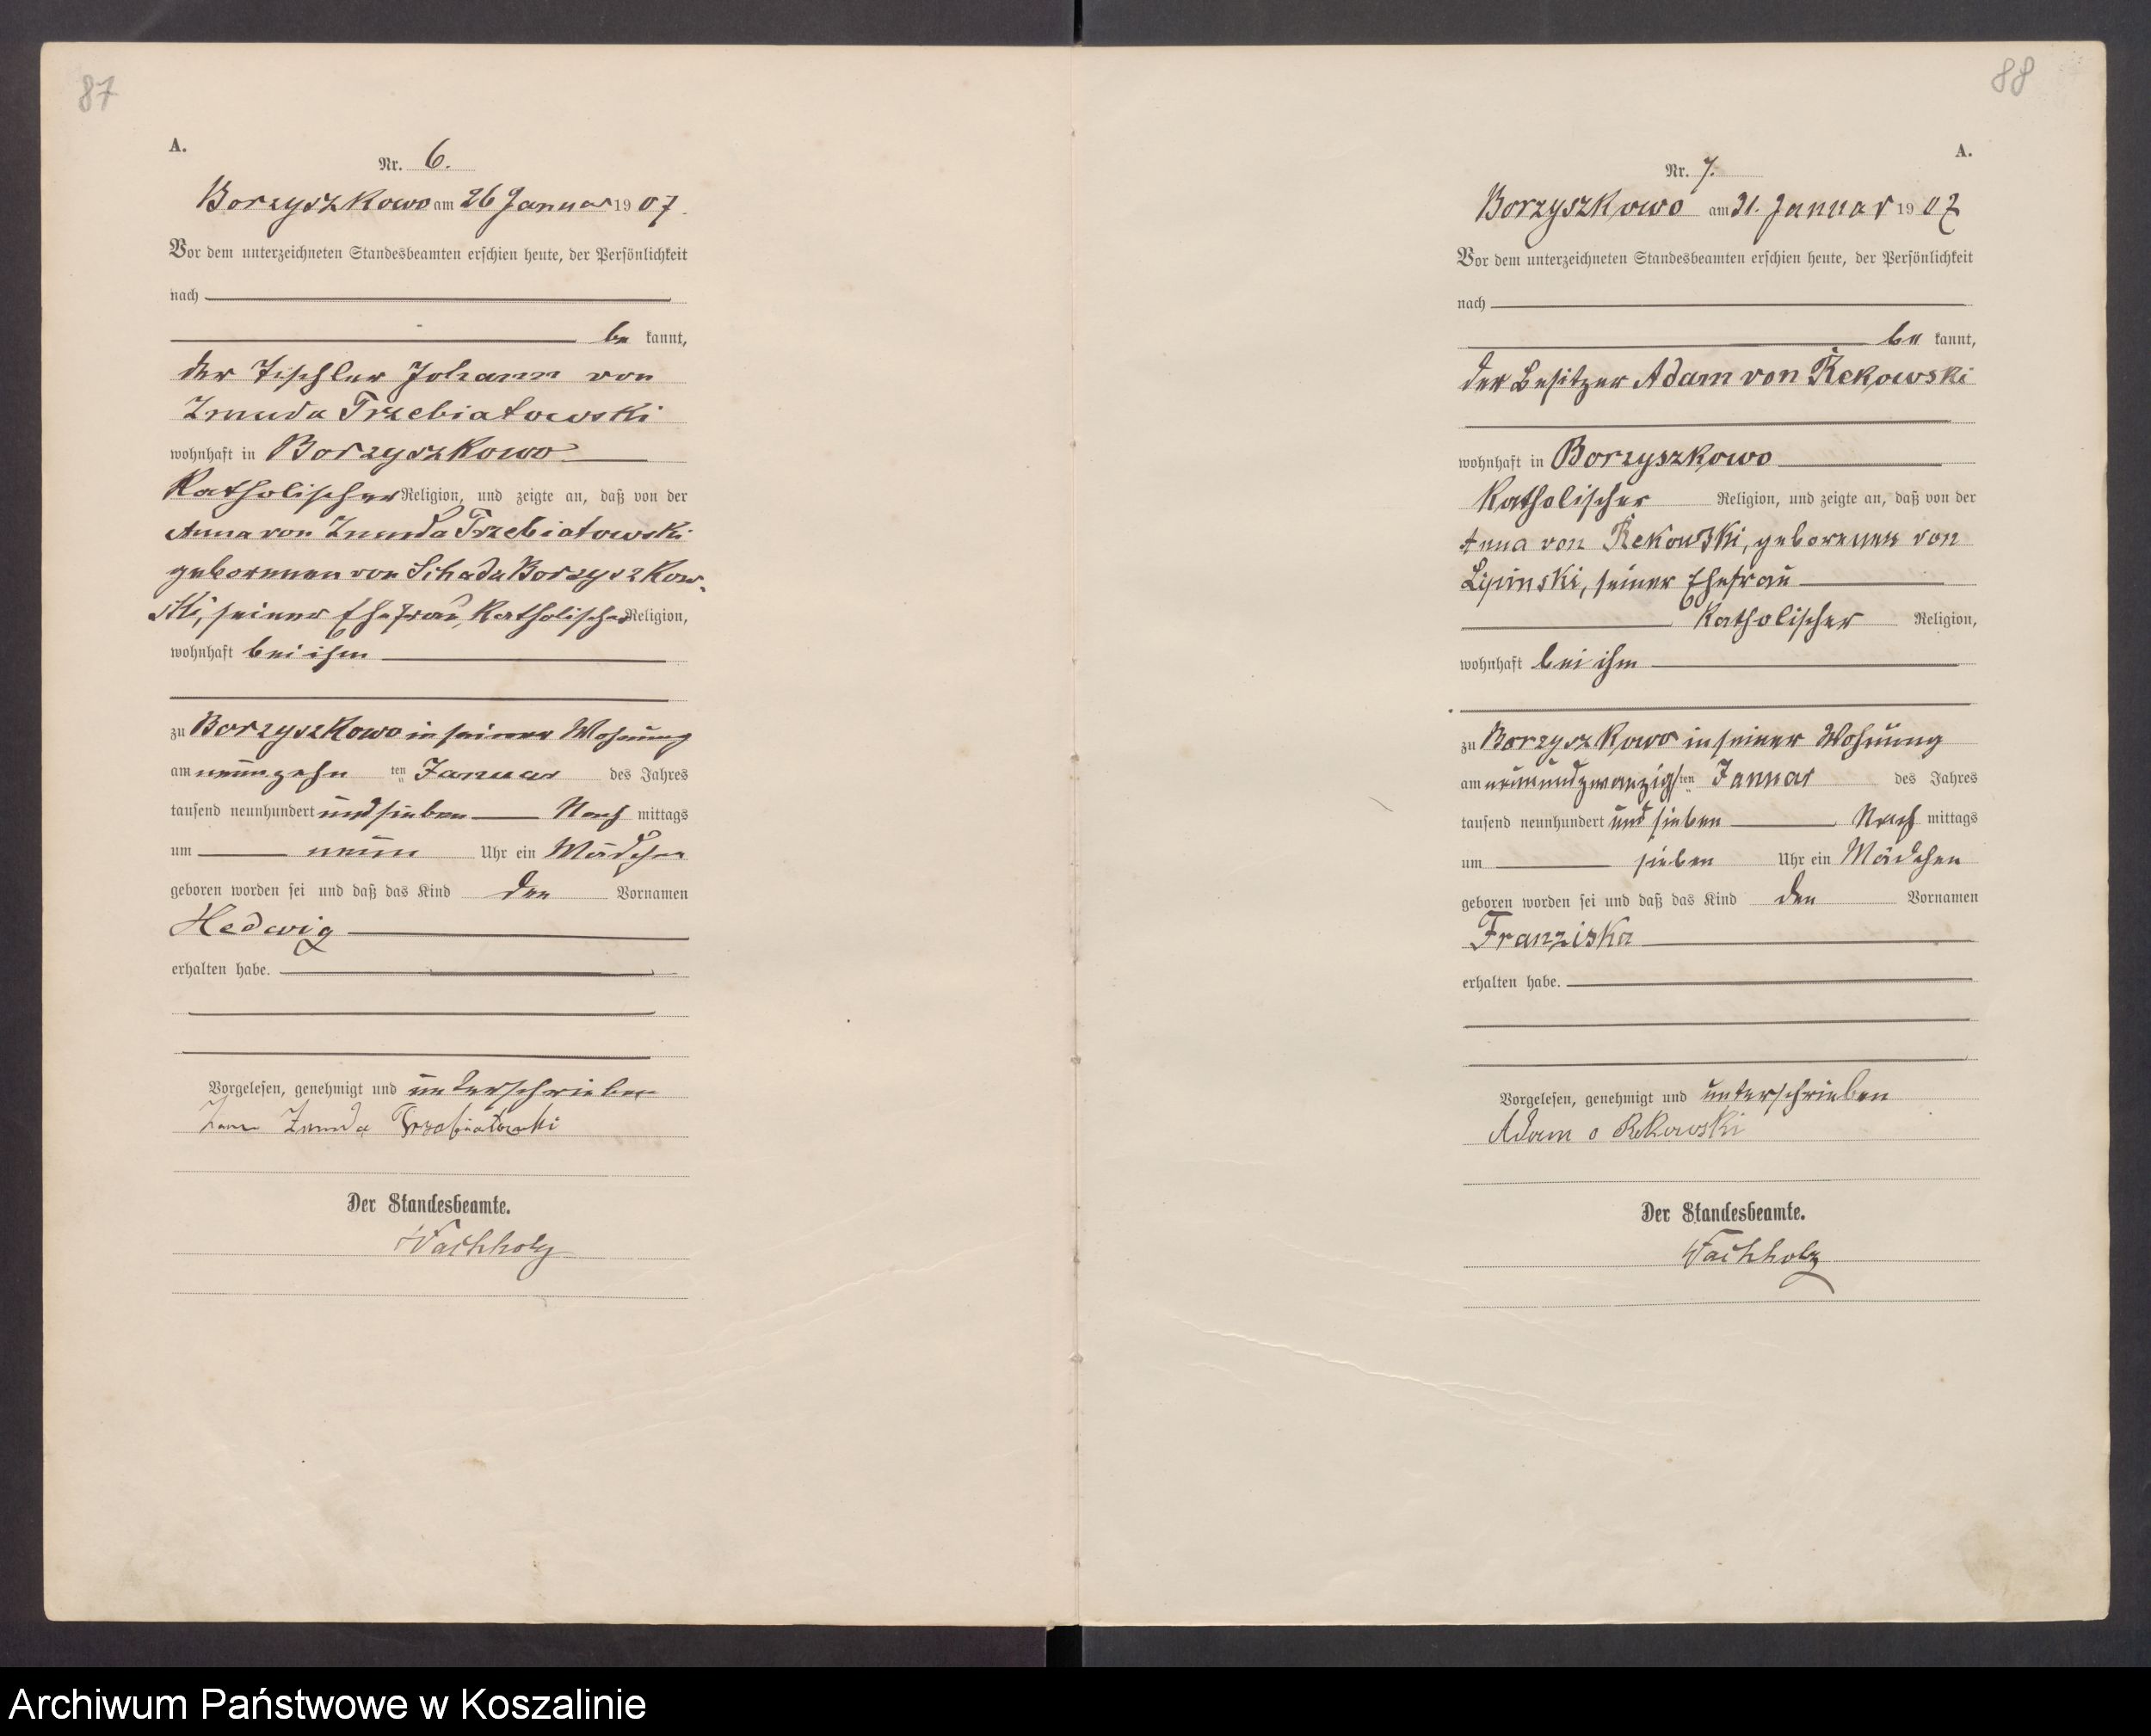 87
A.
Nr. 6.
Borzyszkowo am 26 Januar 1907.
Vor dem unterzeichneten Standesbeamten erschien heute, der Persönlichkeit
nach
be kannt,
der Tischler Johann von
Zmuda Trzebiatowski
wohnhaft in Borzyszkowo
Katholischer Religion, und zeigte an, daß von der
Anna von Zmuda Trzebiatowski
geborenen von Schada Borzyszkow-
ski, seiner Ehefrau, Katholischer Religion,
wohnhaft bei ihm
zu Borzyszkowo in seiner Wohnung
am neunzehn ten Januar des Jahres
tausend neunhundert und sieben Nach mittags
um neun Uhr ein Mädchen
geboren worden sei und daß das Kind den Vornamen
Hedwig
erhalten habe.
Vorgelesen, genehmigt und unterschrieben
Zmuda Trzebiatowski
Der Standesbeamte.
Wachholz
88
A.
Nr. 7.
Borzyszkowo am 31. Januar 1907
Vor dem unterzeichneten Standesbeamten erschien heute, der Persönlichkeit
nach
be kannt,
der Besitzer Adam von Rekowski
wohnhaft in Borzyszkowo
Katholischer Religion, und zeigte an, daß von der
Anna von Rekowski, geborenen von
Lipinski, seiner Ehefrau
Katholischer Religion,
wohnhaft bei ihm
zu Borzyszkowo in seiner Wohnung
am neunundzwanzigsten Januar des Jahres
tausend neunhundert und sieben Nach mittags
um sieben Uhr ein Mädchen
geboren worden sei und daß das Kind den Vornamen
Franziska
erhalten habe.
Vorgelesen, genehmigt und unterschrieben
Adam v Rekowski
Der Standesbeamte.
Wachholz
Archiwum Państwowe w Koszalinie